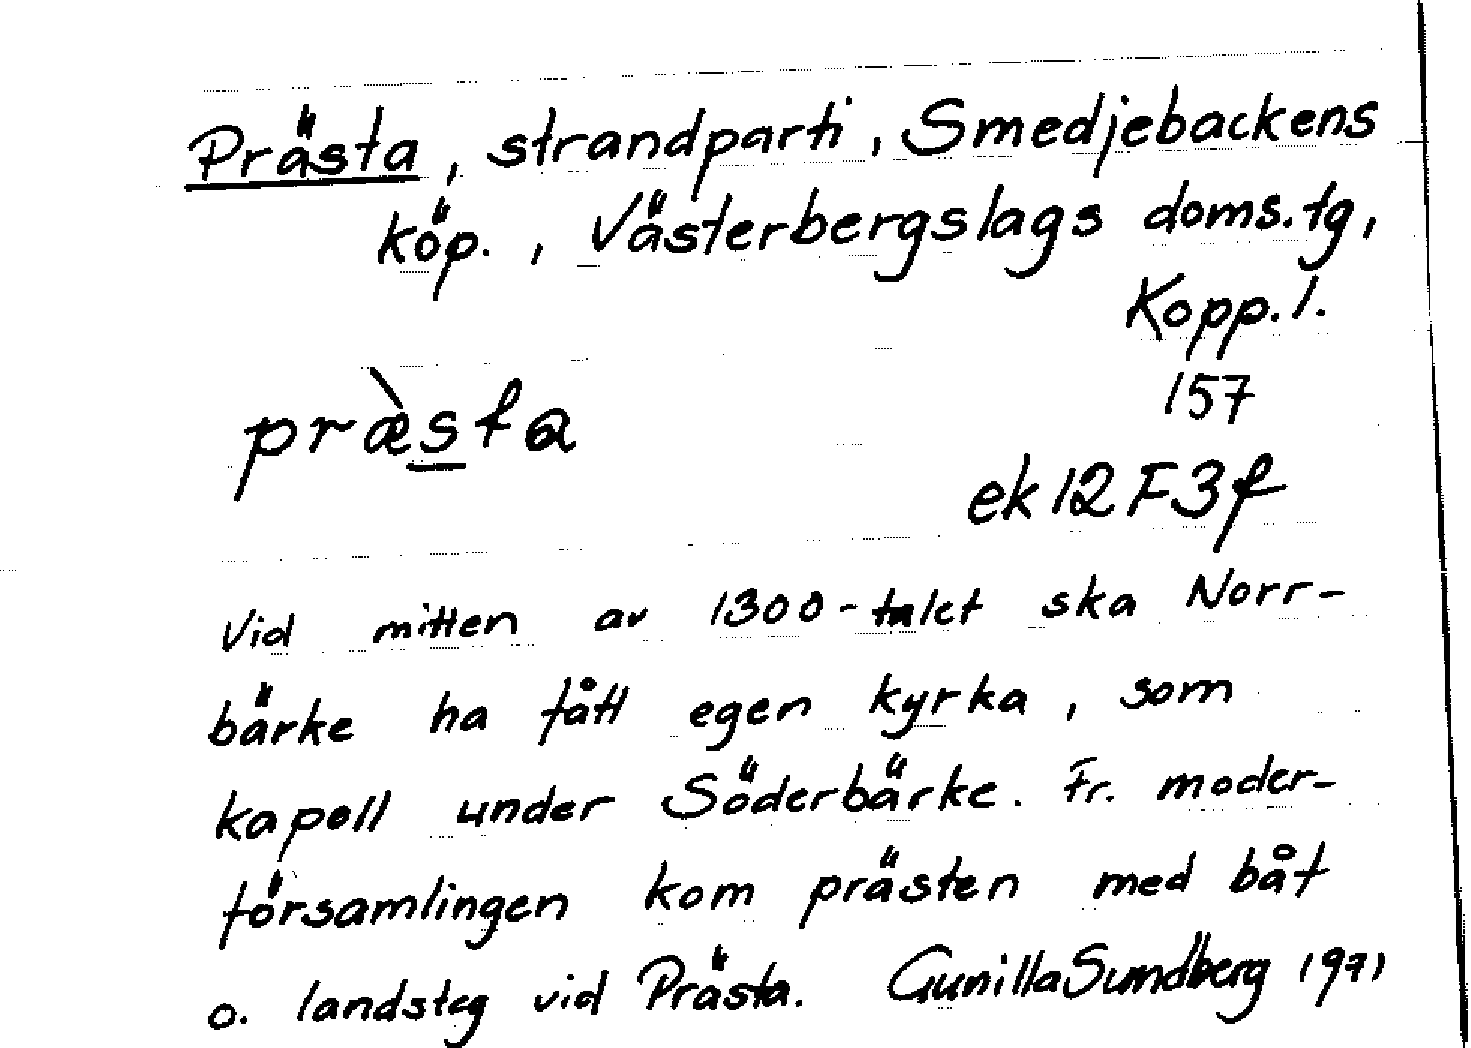 Prästa, strandparti, Smedjebackens
köp., Västerbergslags doms.tg,
Kopp.l.
157
præ̀sta
ek 12 F3f
Vid mitten av 1300-talet ska Norr-
bärke ha fått egen kyrka, som
kapell under Söderbärke. Fr. moder-
församlingen kom prästen med båt
o. landsteg vid Prästa. Gunilla Sundberg 1971